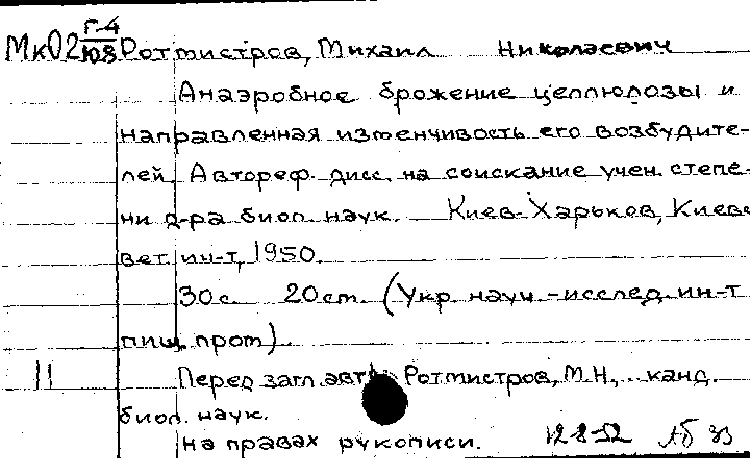 Г-4
МК02 юз Ротмистров, Михаил Николаевич
Анаэробное брожение целлюлозы и
направленная изменчивость его возбудите-
лей. Автореф. дисс. на соискание учен. степе-
ни д-ра биол. наук. Киев-Харьков, Киев.
вет. ин-т, 1950.
30с. 20см. (Укр. науч.-исслед. ин-т
пищ. пром)
11 Перед загл. авт.: Ротмистров, М.Н., канд.
биол. наук.
На правах рукописи. 12-8-52